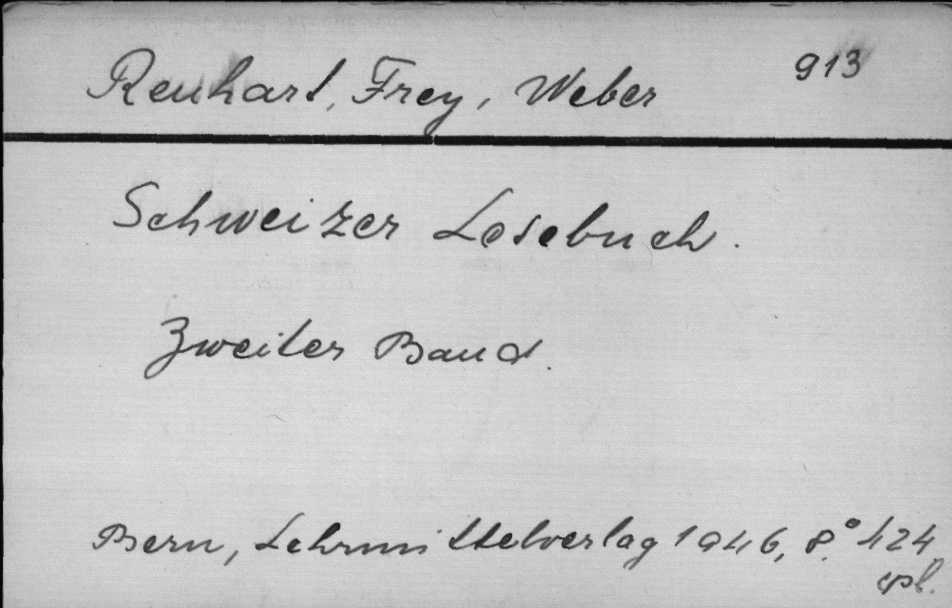 Reuhart, Frey, Weber 913
Schweizer Lesebuch.
Zweiter Band.
Bern, Lehrmittelverlag 1946, 8.° 424
cpl.